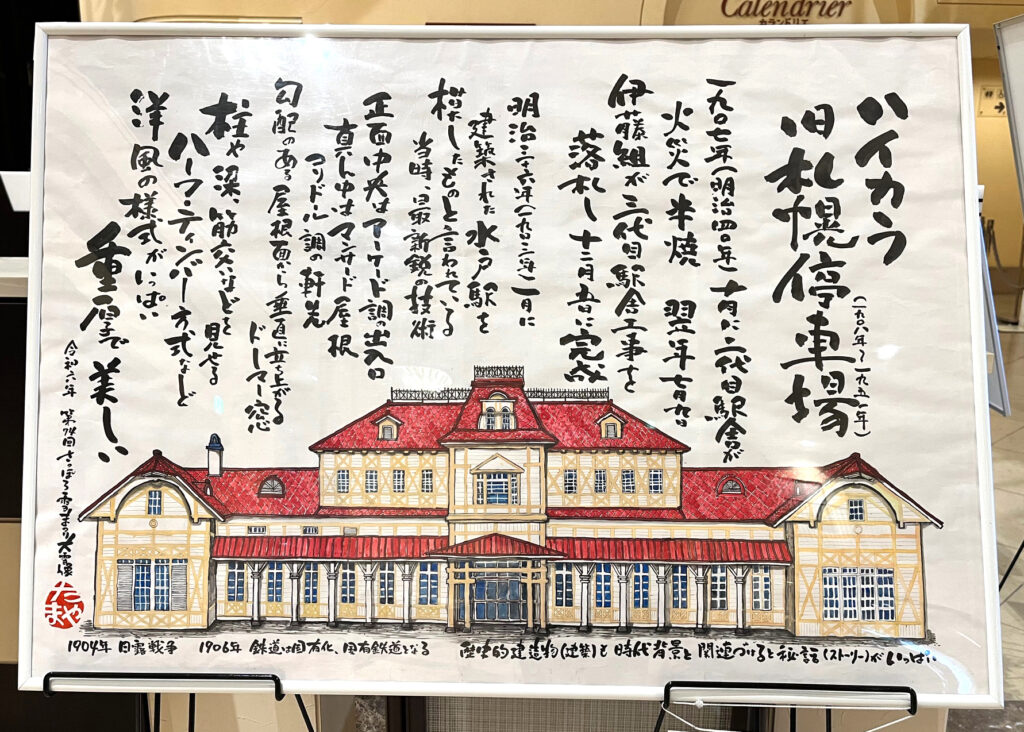 Calendrier
カランドリエ
ハイカラ
旧札幌停車場
(一九〇八年〜一九五一年)
一九〇七年(明治四〇年)十月に二代目駅舎が
火災で半焼 翌年七月九日
伊藤組が三代目駅舎工事を
落札し十二月五日に完成
明治三十六年(一九〇三年)一月に
建築された水戸駅を
模したものと言われている
当時、最新鋭の技術
正面中央はアーケード調の出入口
真ん中はマンサード屋根
マリドール調の軒先
勾配のある屋根面から垂直に立ち上がる
ドーマー窓
柱や梁、筋交いなどを見せる
ハーフ・ティンバー方式など
洋風の様式がいっぱい
重厚で美しい
令和六年 第74回さっぽろ雪まつり大雪像
たまや
1904年 日露戦争 1906年 鉄道は国有化、国有鉄道となる 歴史的建造物(建築)も時代背景と関連づけると秘話(ストーリー)がいっぱい